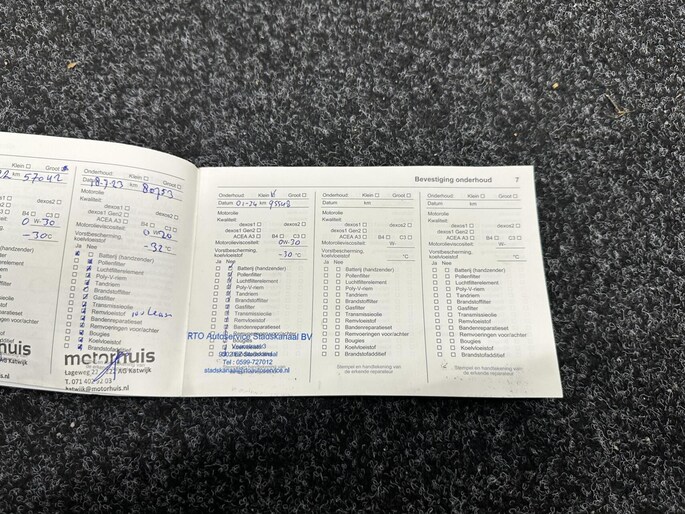 Klein Groot
22 57042
0 W-30
-30°C
Onderhoud: Klein Groot
Datum 18-7-23 km 80753
Motorolie
Kwaliteit:
dexos1 dexos2
dexos1 Gen2
ACEA A3 B4 C3
Motorolieviscositeit: 0 W-20
Vorstbescherming, koelvloeistof -32°C
Ja Nee
Batterij (handzender)
Pollenfilter
Luchtfilterelement
Poly-V-riem
Tandriem
Brandstoffilter
Gasfilter
Transmissieolie
Remvloeistof
Bandenreparatieset
Remvoeringen voor/achter
Bougies
Koelvloeistof
Brandstofadditief
motorhuis
AG Katwijk
T. 071 40
katwijk@motorhuis.nl
Bevestiging onderhoud 7
Onderhoud: Klein Groot
Datum 01-24 km
Motorolie
Kwaliteit:
dexos1 dexos2
dexos1 Gen2
ACEA A3 B4 C3
Motorolieviscositeit: 0W-30
Vorstbescherming,
koelvloeistof -30°C
Ja Nee
Batterij (handzender)
Pollenfilter
Luchtfilterelement
Poly-V-riem
Tandriem
Brandstoffilter
Gasfilter
Transmissieolie
Remvloeistof
Bandenreparatieset
Remvoeringen voor/achter
RTO Autoservice Stadskanaal BV
Tel : 0599-727012
Onderhoud: Klein Groot
Datum km
Motorolie
Kwaliteit:
dexos1 dexos2
dexos1 Gen2
ACEA A3 B4 C3
Motorolieviscositeit: W-
Vorstbescherming,
koelvloeistof °C
Ja Nee
Batterij (handzender)
Pollenfilter
Luchtfilterelement
Poly-V-riem
Tandriem
Brandstoffilter
Gasfilter
Transmissieolie
Remvloeistof
Bandenreparatieset
Remvoeringen voor/achter
Bougies
Koelvloeistof
Brandstofadditief
Stempel en handtekening van
de erkende reparateur
Onderhoud: Klein Groot
Datum km
Motorolie
Kwaliteit:
dexos1 dexos2
dexos1 Gen2
ACEA A3 B4 C3
Motorolieviscositeit: W-
Vorstbescherming,
koelvloeistof °C
Ja Nee
Batterij (handzender)
Pollenfilter
Luchtfilterelement
Poly-V-riem
Tandriem
Brandstoffilter
Gasfilter
Transmissieolie
Remvloeistof
Bandenreparatieset
Remvoeringen voor/achter
Bougies
Koelvloeistof
Brandstofadditief
Stempel en handtekening van
de erkende reparateur